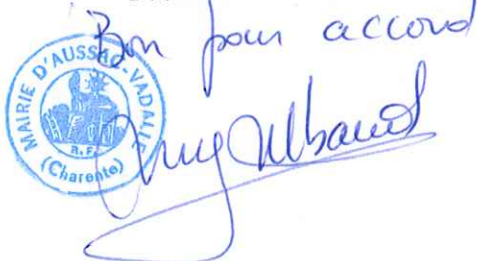 Bon pour accord
MAIRIE D'AUSSAC-VADALLE
R.F.
(Charente)